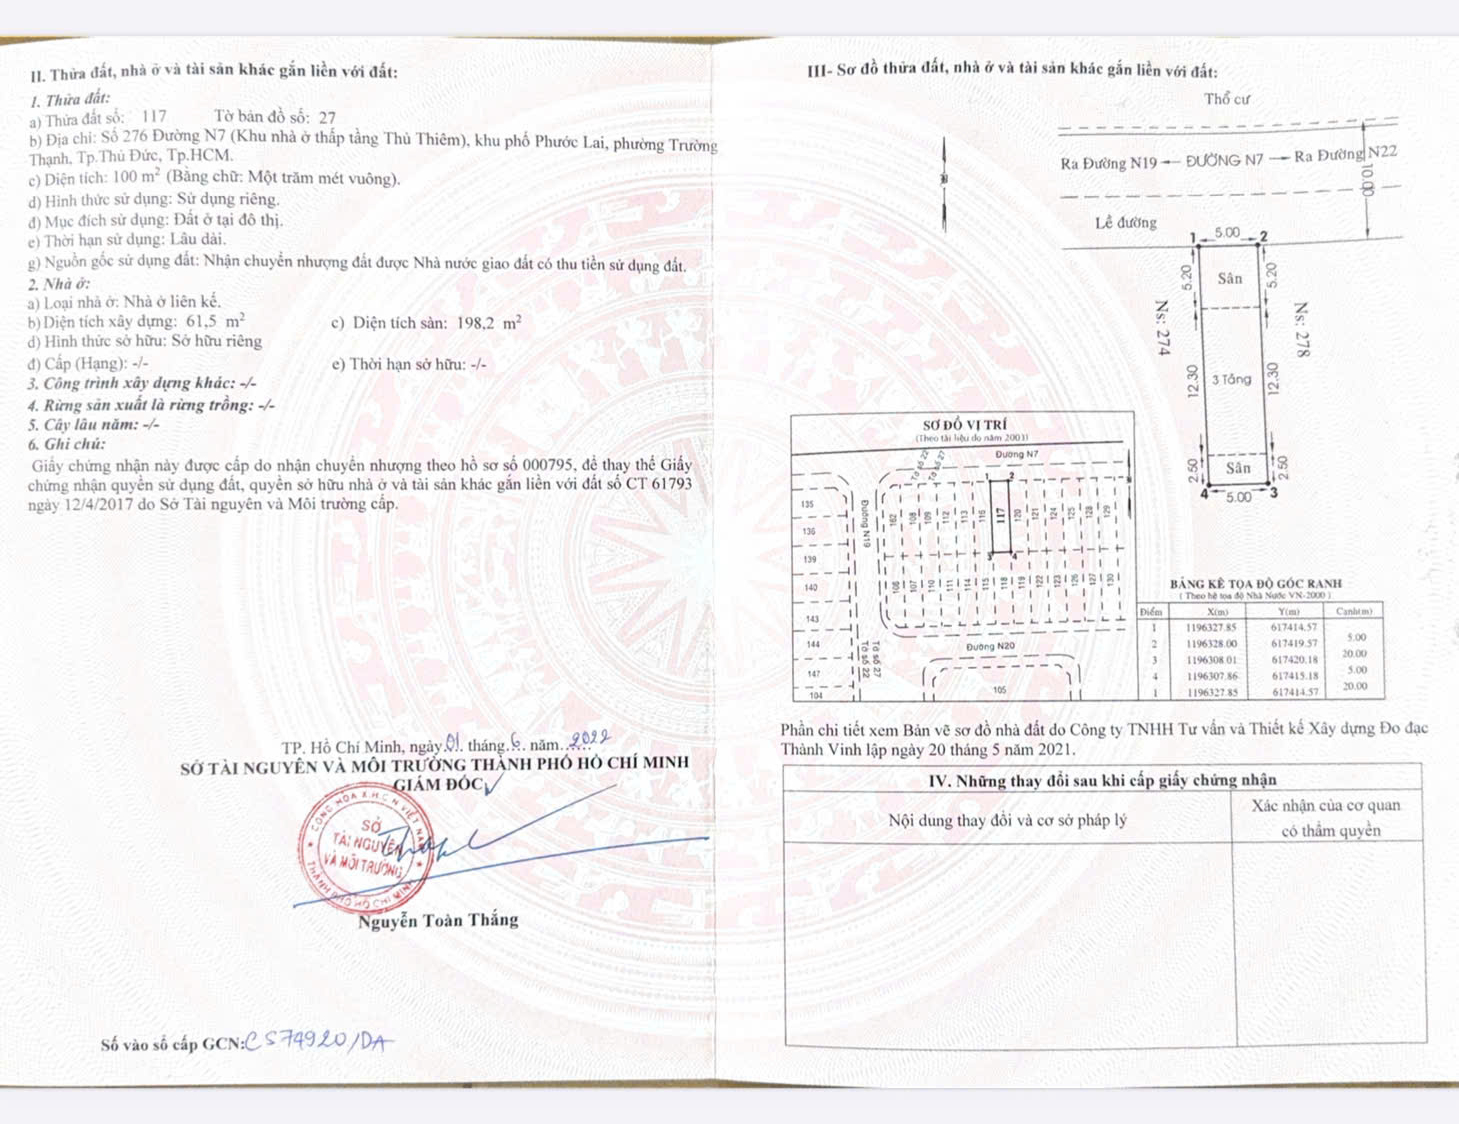 II. Thửa đất, nhà ở và tài sản khác gắn liền với đất:
1. Thửa đất:
a) Thửa đất số: 117 Tờ bản đồ số: 27
b) Địa chỉ: Số 276 Đường N7 (Khu nhà ở thấp tầng Thủ Thiêm), khu phố Phước Lai, phường Trường
Thạnh, Tp.Thủ Đức, Tp.HCM.
c) Diện tích: 100 m² (Bằng chữ: Một trăm mét vuông).
d) Hình thức sử dụng: Sử dụng riêng.
đ) Mục đích sử dụng: Đất ở tại đô thị.
e) Thời hạn sử dụng: Lâu dài.
g) Nguồn gốc sử dụng đất: Nhận chuyển nhượng đất được Nhà nước giao đất có thu tiền sử dụng đất.
2. Nhà ở:
a) Loại nhà ở: Nhà ở liên kế.
b) Diện tích xây dựng: 61,5 m² c) Diện tích sàn: 198,2 m²
d) Hình thức sở hữu: Sở hữu riêng
đ) Cấp (Hạng): -/- e) Thời hạn sở hữu: -/-
3. Công trình xây dựng khác: -/-
4. Rừng sản xuất là rừng trồng: -/-
5. Cây lâu năm: -/-
6. Ghi chú:
Giấy chứng nhận này được cấp do nhận chuyển nhượng theo hồ sơ số 000795, để thay thế Giấy
chứng nhận quyền sử dụng đất, quyền sở hữu nhà ở và tài sản khác gắn liền với đất số CT 61793
ngày 12/4/2017 do Sở Tài nguyên và Môi trường cấp.
TP. Hồ Chí Minh, ngày 01 tháng 6 năm 2022
SỞ TÀI NGUYÊN VÀ MÔI TRƯỜNG THÀNH PHỐ HỒ CHÍ MINH
GIÁM ĐỐC
CỘNG HÒA X.H.C.N VIỆT NAM
SỞ
TÀI NGUYÊN
VÀ MÔI TRƯỜNG
THÀNH PHỐ HỒ CHÍ MINH
Nguyễn Toàn Thắng
Số vào sổ cấp GCN: CS74920/DA
III- Sơ đồ thửa đất, nhà ở và tài sản khác gắn liền với đất:
Thổ cư
Ra Đường N19 ĐƯỜNG N7 Ra Đường N22
10.00
Lề đường
1 5.00 2
5.20 Sân 5.20
Ns: 274 Ns: 278
12.30 3 Tầng 12.30
2.50 Sân 2.50
4 5.00 3
SƠ ĐỒ VỊ TRÍ
(Theo tài liệu đo năm 2003)
Đường N7
Tờ số 22
Tờ số 27
1 2
135
136
139
140
143
144
147
104
Đường N19
162 108 109 112 113 116 117 120 121 124 125 128 129
3 4
106 107 110 111 114 115 118 119 122 123 126 127 130
Đường N20
Tờ số 27
Tờ số 22
105
BẢNG KÊ TỌA ĐỘ GÓC RANH
( Theo hệ tọa độ Nhà Nước VN-2000 )
Điểm X(m) Y(m) Cạnh(m)
1 1196327.85 617414.57
5.00
2 1196328.00 617419.57
20.00
3 1196308.01 617420.18
5.00
4 1196307.86 617415.18
20.00
1 1196327.85 617414.57
Phần chi tiết xem Bản vẽ sơ đồ nhà đất do Công ty TNHH Tư vấn và Thiết kế Xây dựng Đo đạc
Thành Vinh lập ngày 20 tháng 5 năm 2021.
IV. Những thay đổi sau khi cấp giấy chứng nhận
Nội dung thay đổi và cơ sở pháp lý
Xác nhận của cơ quan
có thẩm quyền